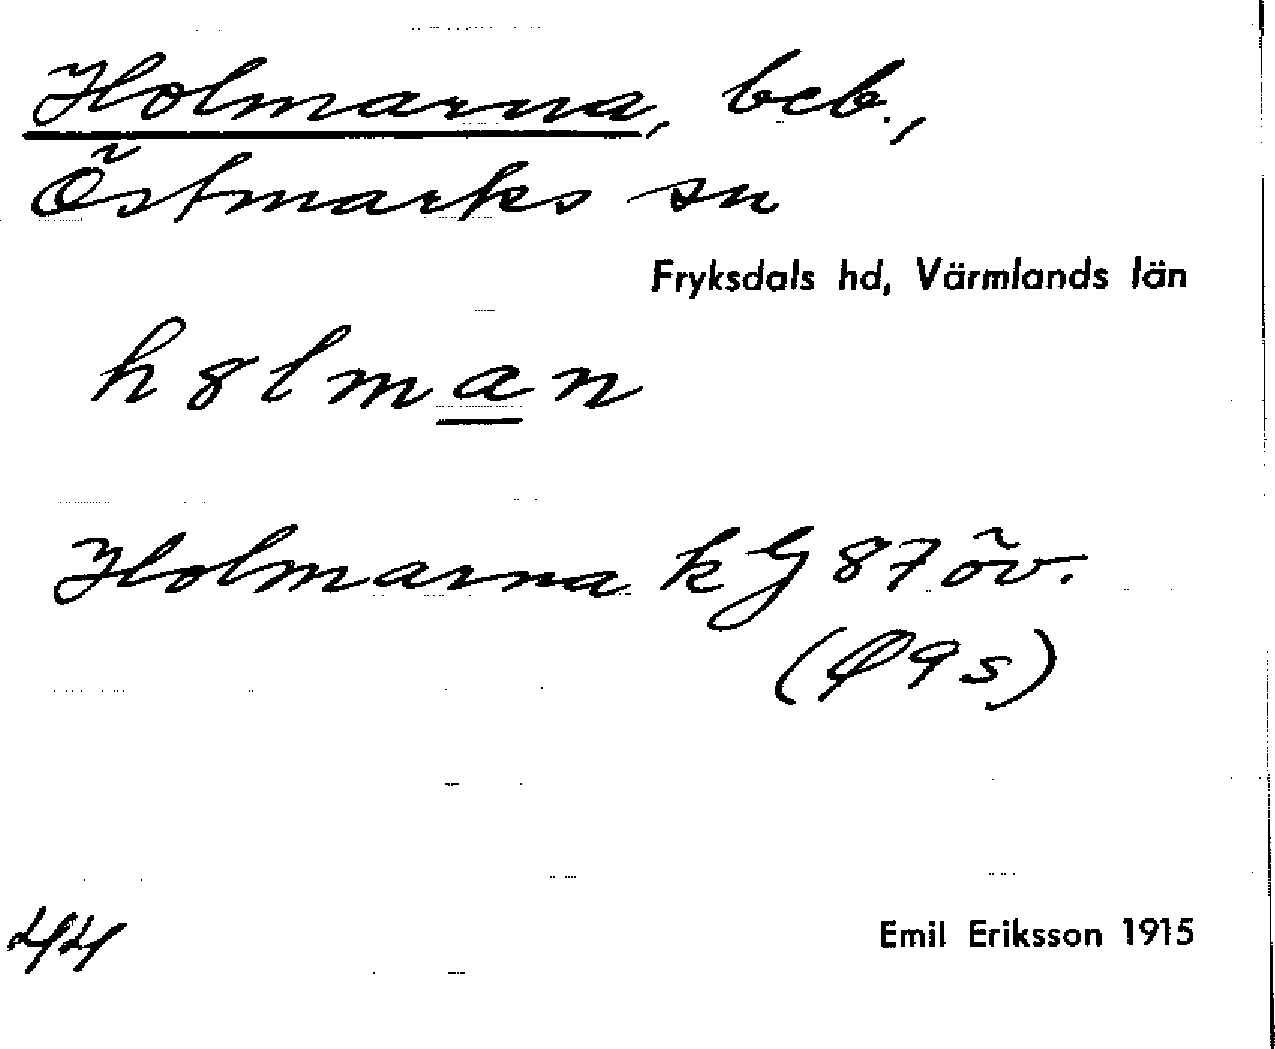 Holmarna, beb.,
Östmarks sn
Fryksdals hd, Värmlands län
h8lman
Holmarna kG 87 öv.
(Q9s)
44
Emil Eriksson 1915